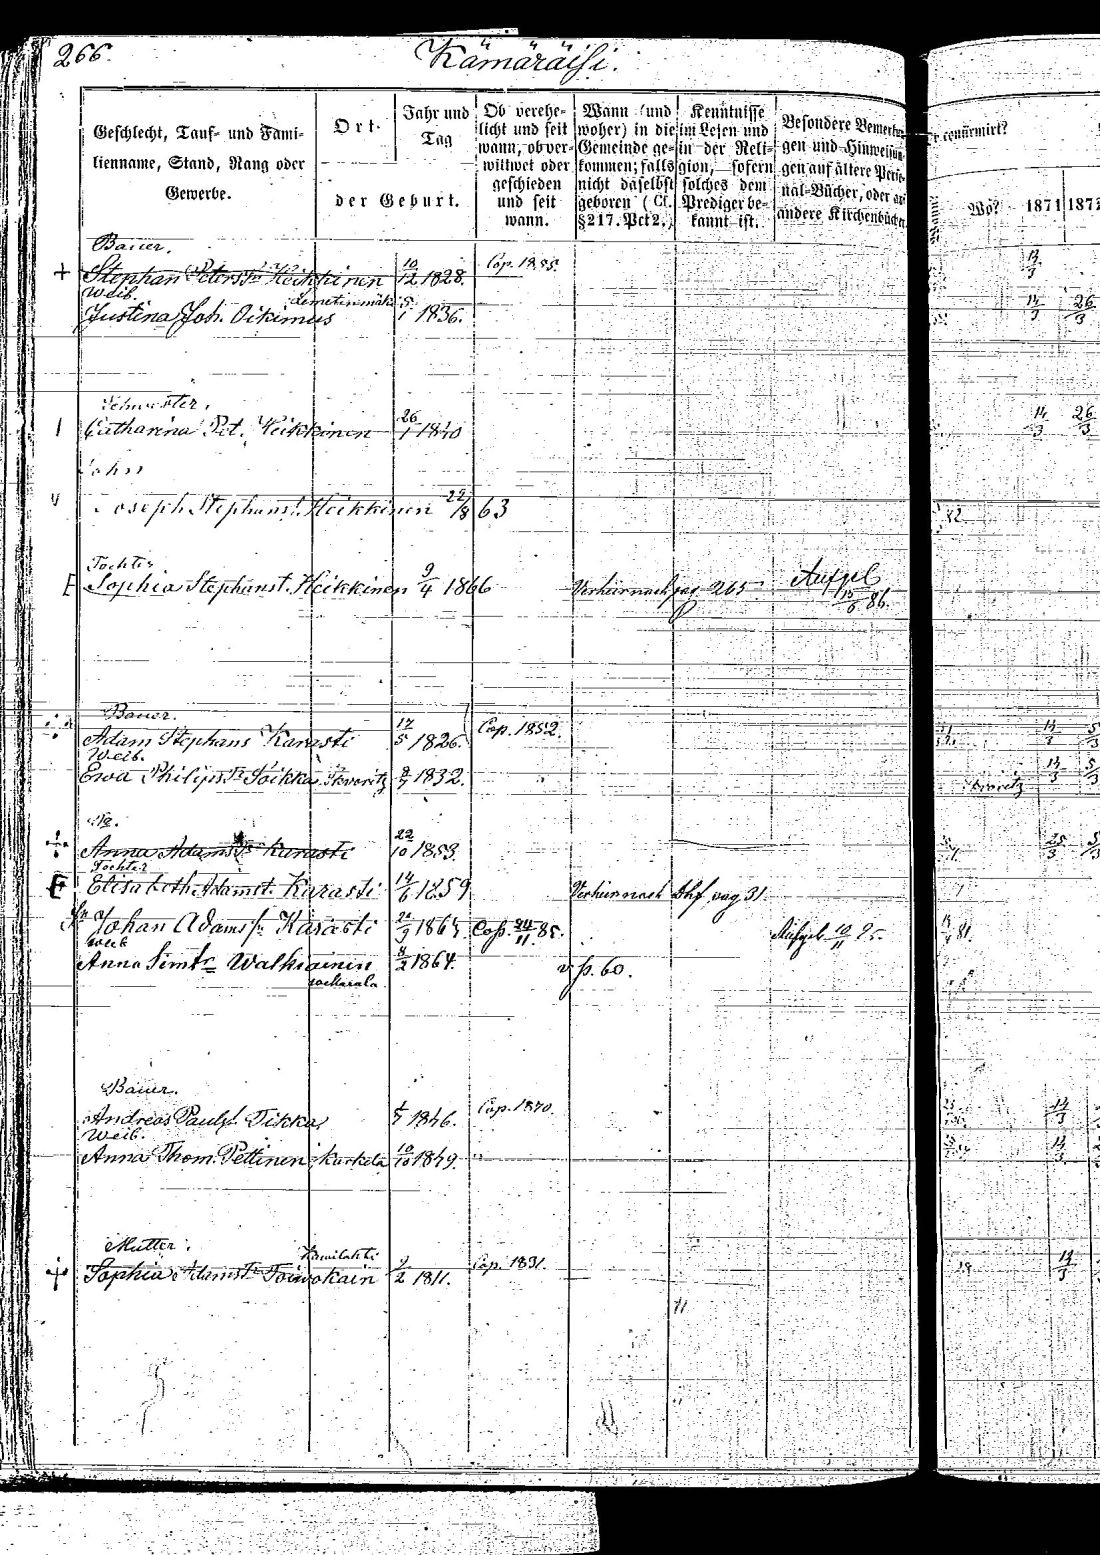 266.
Kämäräisi.
Geschlecht, Tauf- und Familienname, Stand, Rang oder Gewerbe.
Ort
Jahr und Tag
der Geburt.
Ob verehelicht und seit wann, ob verwittwet oder geschieden und seit wann.
Wann (und woher) in die Gemeinde gekommen; falls nicht daselbst geboren (Cf. §217. Pct 2.)
Kenntnisse im Lesen und in der Religion, sofern solches dem Prediger bekannt ist.
Besondere Bemerkungen und Hinweisungen auf ältere Personal-Bücher, oder an andere Kirchenbücher
confirmirt?
Wo? 1871 1872
Bauer.
+ Stephan Peterss. Heikkinen 10/12 1828. Cop. 1855. 13/3
Weib.
Justina Joh. Oikimus 5/1 1836. 14/3 26/3
Schwester.
Catharina Pet. Heikkinen 26/1 1840 14/3 26/3
Sohn
Joseph Stephanss. Heikkinen 22/8 63 82
Tochter
Sophia Stephanst. Heikkinen 9/4 1866 Verheir. nach pag 265 Aufgeb 15/6 86.
Bauer.
Adam Stephans Karasti 17/5 1826. Cop. 1852. 13/3
Weib.
Ewa Philipst. Toikka Skworitz 1832. 13/3
Anna Adamst. Karasti 22/10 1853. 25/3
Tochter
Elisabeth Adamst. Karasti 14/6 1859 Verheir. nach pag 31
Johan Adamss. Karasti Cop. 24/11 85. Aufgeb. 10/11 85. 81.
Weib
Anna Simt. Walkiainin 8/2 1864. v p. 60.
Bauer.
Andreas Pauls. Tikka 1846. Cop. 1870. 14/3
Weib.
Anna Thom. Pettinen Kurkela 10/10 1849. " 14/3
Mutter.
Sophia Adamst. Toiwokain 2 1811. Cop. 1831. 14/3